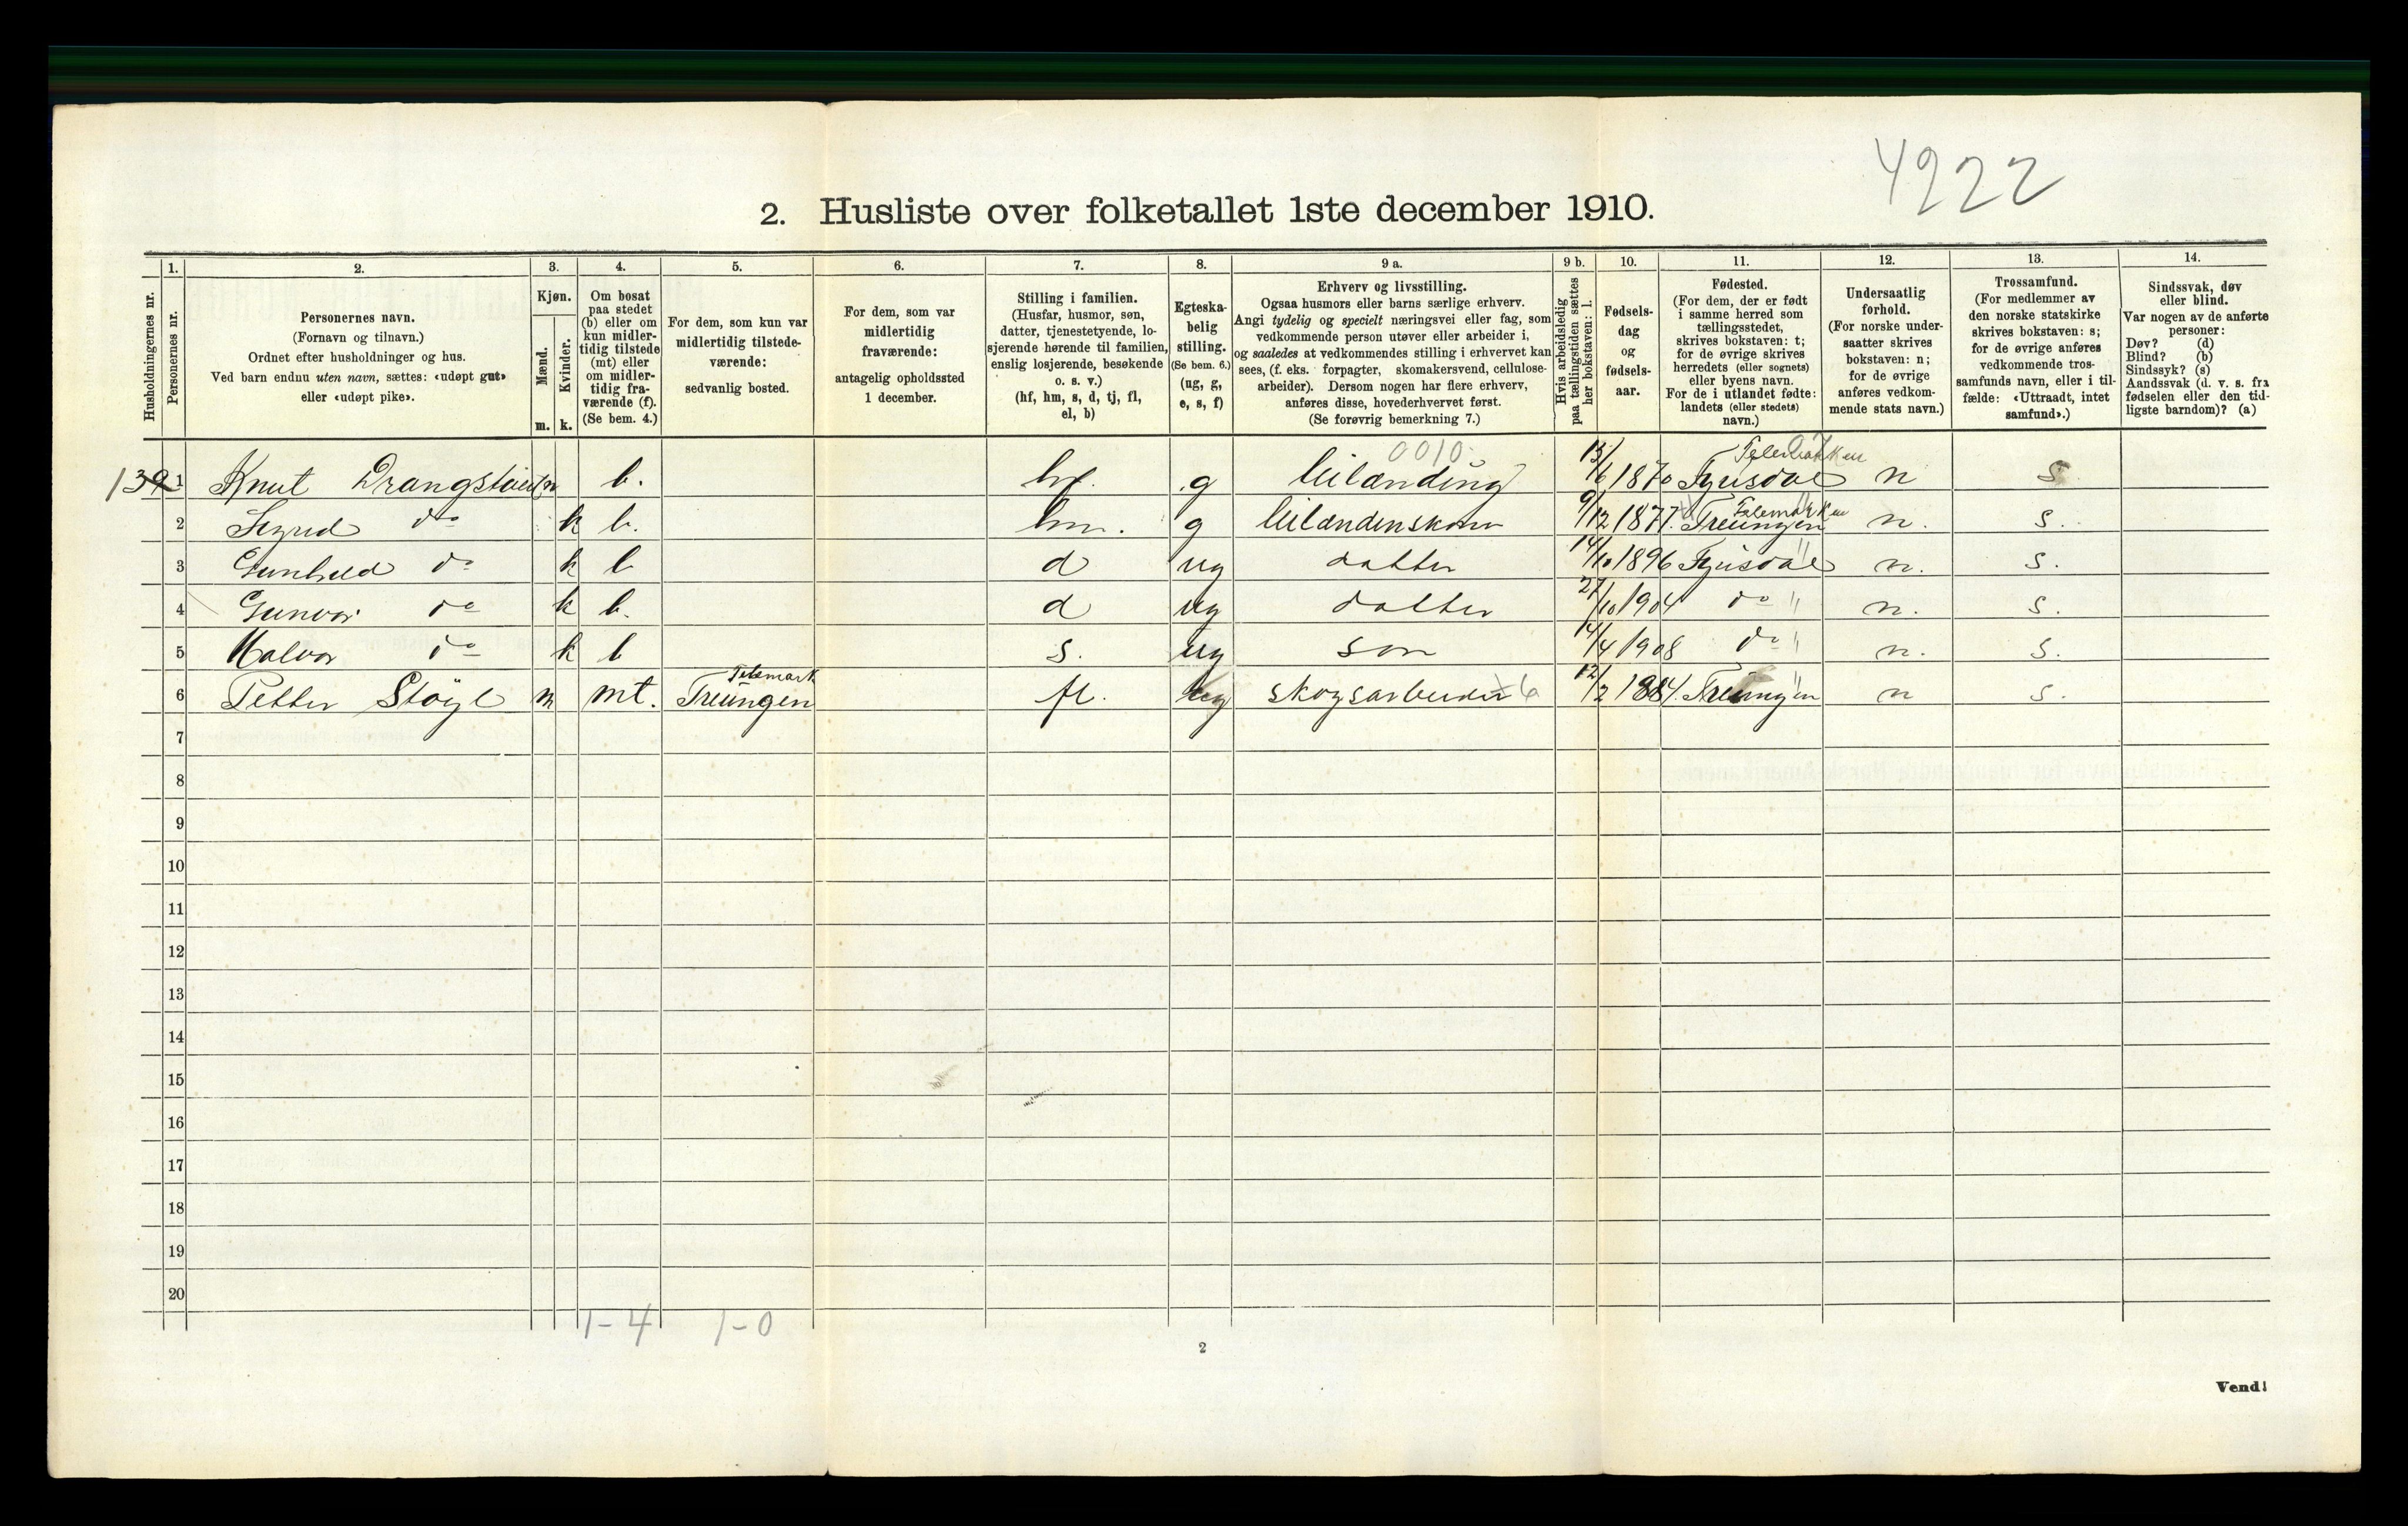 4222
2. Husliste over folketallet 1ste december 1910.
Husholdningernes nr.
1.
Personernes nr.
2.
Personernes navn.
(Fornavn og tilnavn.)
Ordnet efter husholdninger og hus.
Ved barn endnu uten navn, sættes: «udøpt gut»
eller «udøpt pike».
3.
Kjøn.
Mænd.
Kvinder.
m. k.
4.
Om bosat
paa stedet
(b) eller om
kun midler-
tidig tilstede
(mt) eller
om midler-
tidig fra-
værende (f).
(Se bem. 4.)
5.
For dem, som kun var
midlertidig tilstede-
værende:
sedvanlig bosted.
6.
For dem, som var
midlertidig
fraværende:
antagelig opholdssted
1 december.
7.
Stilling i familien.
(Husfar, husmor, søn,
datter, tjenestetyende, lo-
sjerende hørende til familien,
enslig losjerende, besøkende
o. s. v.)
(hf, hm, s, d, tj, fl,
el, b)
8.
Egteska-
belig
stilling.
(Se bem. 6.)
(ug, g,
e, s, f)
9 a.
Erhverv og livsstilling.
Ogsaa husmors eller barns særlige erhverv.
Angi tydelig og specielt næringsvei eller fag, som
vedkommende person utøver eller arbeider i,
og saaledes at vedkommendes stilling i erhvervet kan
sees, (f. eks. forpagter, skomakersvend, cellulose-
arbeider). Dersom nogen har flere erhverv,
anføres disse, hovederhvervet først.
(Se forøvrig bemerkning 7.)
9 b.
Hvis arbeidsledig
paa tællingstiden sættes
her bokstaven: l.
10.
Fødsels-
dag
og
fødsels-
aar.
11.
Fødested.
(For dem, der er født
i samme herred som
tællingsstedet,
skrives bokstaven: t;
for de øvrige skrives
herredets (eller sognets)
eller byens navn.
For de i utlandet fødte:
landets (eller stedets)
navn.)
12.
Undersaatlig
forhold.
(For norske under-
saatter skrives
bokstaven: n;
for de øvrige
anføres vedkom-
mende stats navn.)
13.
Trossamfund.
(For medlemmer av
den norske statskirke
skrives bokstaven: s;
for de øvrige anføres
vedkommende tros-
samfunds navn, eller i til-
fælde: «Uttraadt, intet
samfund».)
14.
Sindssvak, døv
eller blind.
Var nogen av de anførte
personer:
Døv? (d)
Blind? (b)
Sindssyk? (s)
Aandssvak (d. v. s. fra
fødselen eller den tid-
ligste barndom)? (a)
0010 Telemarken
139 1 Knut m b. hf. g leilænding 1870 n s
Telemarken
2 do k b. hm. g 9/12 1877. Treungen n. s.
3 Gunhild do k b d ug datter 14/10 1896 n. s.
4 Gunvor do k b. d ug datter 27/10 1904 do " n. s.
5 Halvor do k b s. ug son 14/4 1908 do " n. s.
Telemark
6 Petter Støyl m mt. Treungen fl. ug skogsarbeider 6 12/2 1884. Treungen n s.
7
8
9
10
11
12
13
14
15
16
17
18
19
20
1-4 1-0
2
Vend!